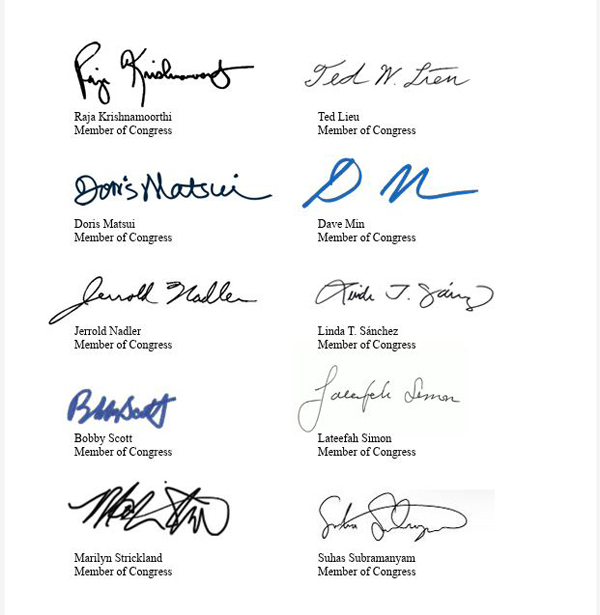 Raja Krishnamoorthi
Raja Krishnamoorthi
Member of Congress
Ted W. Lieu
Ted Lieu
Member of Congress
Doris Matsui
Doris Matsui
Member of Congress
D M
Dave Min
Member of Congress
Jerrold Nadler
Jerrold Nadler
Member of Congress
Linda T. Sánchez
Linda T. Sánchez
Member of Congress
Bobby Scott
Bobby Scott
Member of Congress
Lateefah Simon
Lateefah Simon
Member of Congress
Marilyn Strickland
Member of Congress
Suhas Subramanyam
Member of Congress